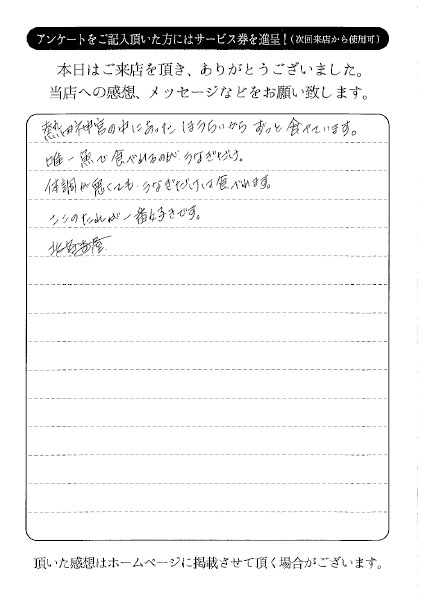 アンケートをご記入頂いた方にはサービス券を進呈!(次回来店から使用可)
本日はご来店を頂き、ありがとうございました。
当店への感想、メッセージなどをお願い致します。
熱田神宮の中にあった ほうらいから ずっと食べています。
唯一魚で食べれるのが、うなぎだけ。
体調が悪くても、うなぎだけは食べれます。
ここのたれが一番好きです。
頂いた感想はホームページに掲載させて頂く場合がございます。